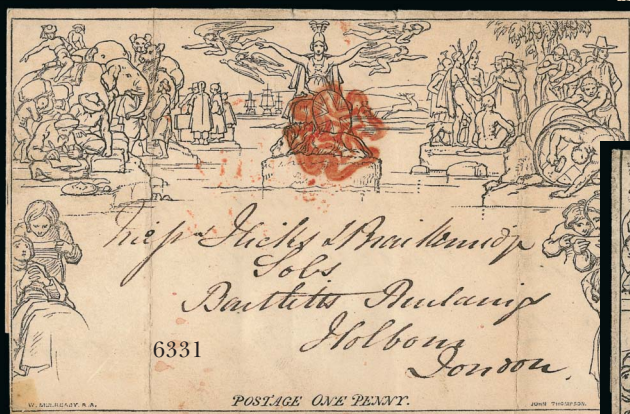 Messrs Hicks & Braikenridge
Sols
Bartletts Buildings
Holborn
London.
6331
W. MULREADY. R.A.
POSTAGE ONE PENNY.
JOHN THOMPSON.